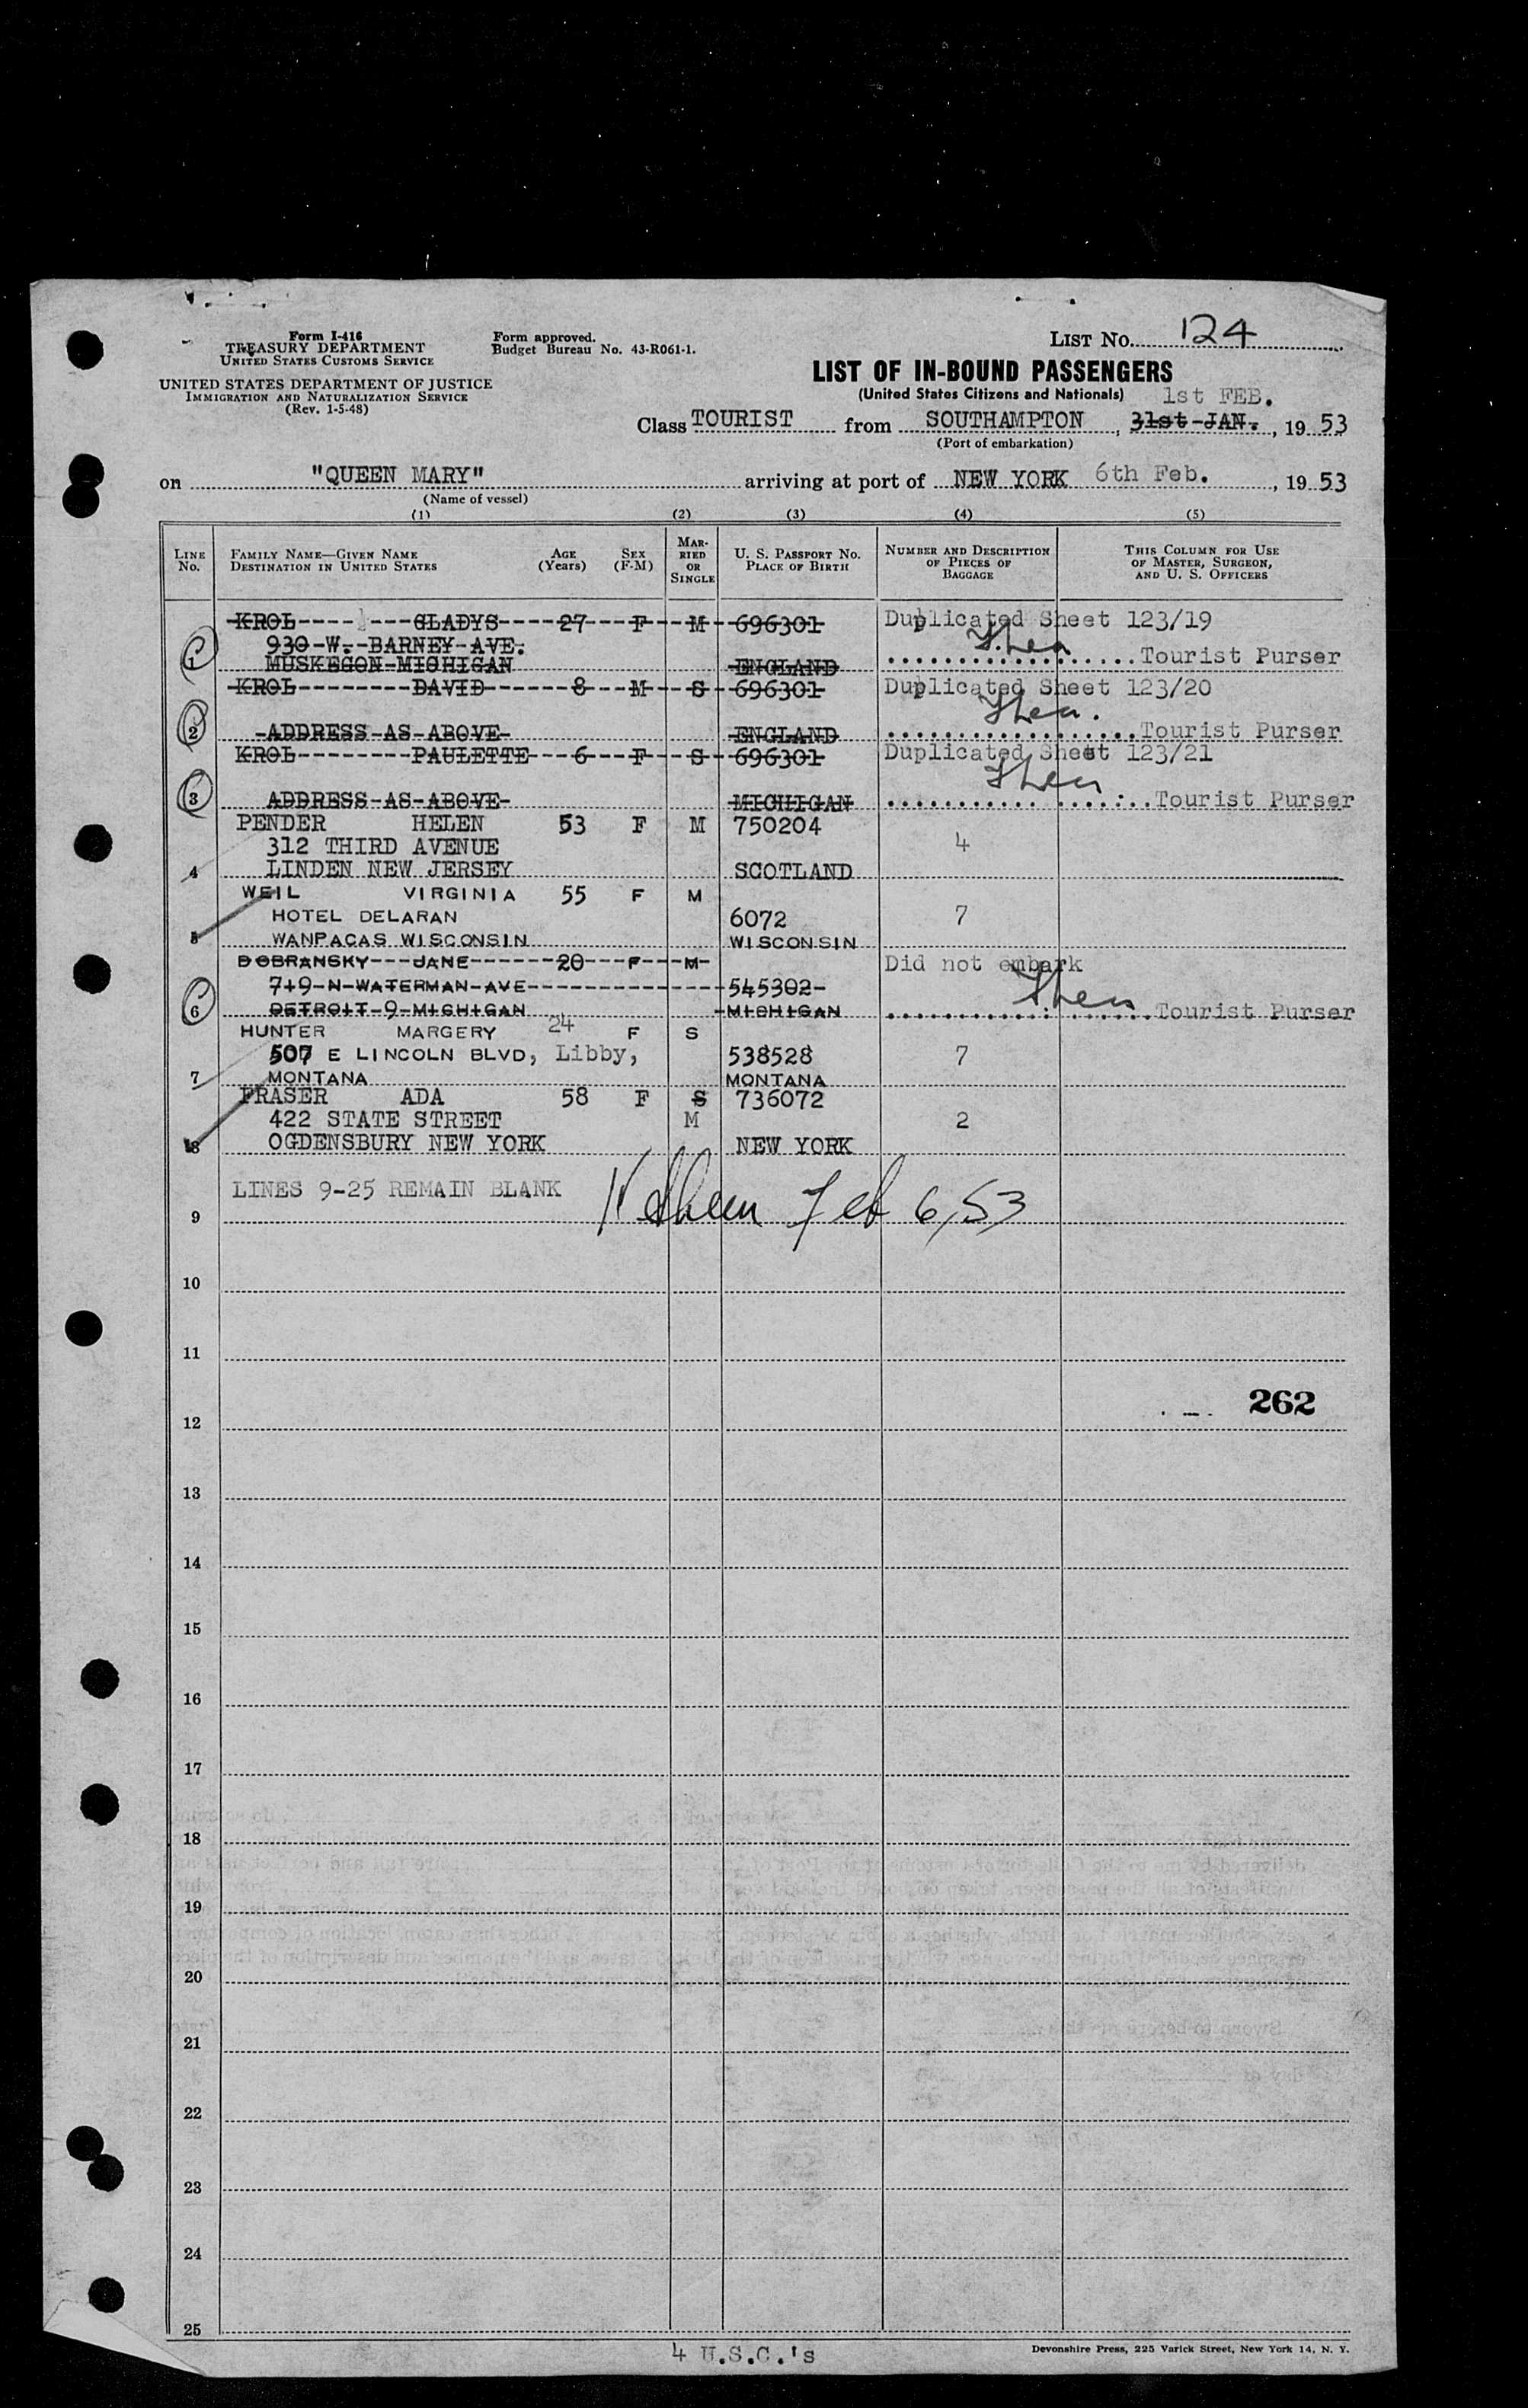 Form I-416
TREASURY DEPARTMENT
UNITED STATES CUSTOMS SERVICE
UNITED STATES DEPARTMENT OF JUSTICE
IMMIGRATION AND NATURALIZATION SERVICE
(Rev. 1-5-48)
Form approved.
Budget Bureau No. 43-R061-1.
LIST No. 124
LIST OF IN-BOUND PASSENGERS
(United States Citizens and Nationals)
1st FEB.
Class TOURIST from SOUTHAMPTON, 31st-JAN., 1953
(Port of embarkation)
on "QUEEN MARY" arriving at port of NEW YORK 6th Feb., 1953
(Name of vessel)
(1) (2) (3) (4) (5)
LINE No.
FAMILY NAME—GIVEN NAME
DESTINATION IN UNITED STATES
AGE (Years)
SEX (F-M)
MARRIED OR SINGLE
U. S. PASSPORT NO.
PLACE OF BIRTH
NUMBER AND DESCRIPTION OF PIECES OF BAGGAGE
THIS COLUMN FOR USE OF MASTER, SURGEON, AND U. S. OFFICERS
KROL GLADYS 27 F M 696301 Duplicated Sheet 123/19
930-W.-BARNEY-AVE.
1 MUSKEGON-MICHIGAN ENGLAND Tourist Purser
KROL DAVID 8 M S 696301 Duplicated Sheet 123/20
2 ADDRESS-AS-ABOVE- ENGLAND Tourist Purser
KROL PAULETTE 6 F S 696301 Duplicated Sheet 123/21
3 ADDRESS-AS-ABOVE- MICHIGAN Tourist Purser
PENDER HELEN 53 F M 750204
312 THIRD AVENUE 4
4 LINDEN NEW JERSEY SCOTLAND
WEIL VIRGINIA 55 F M
HOTEL DELARAN 6072 7
5 WANPACAS WISCONSIN WISCONSIN
DOBRANSKY JANE 20 F M Did not embark
719-N-WATERMAN-AVE 545302-
6 DETROIT-9-MICHIGAN MICHIGAN Tourist Purser
HUNTER MARGERY 24 F S
507 E LINCOLN BLVD, Libby, 538528 7
7 MONTANA MONTANA
FRASER ADA 58 F S 736072
422 STATE STREET M 2
8 OGDENSBURY NEW YORK NEW YORK
LINES 9-25 REMAIN BLANK
9 Feb 6, 53
10
11
262
12
13
14
15
16
17
18
19
20
21
22
23
24
25
4 U.S.C.'s
Devonshire Press, 225 Varick Street, New York 14, N. Y.